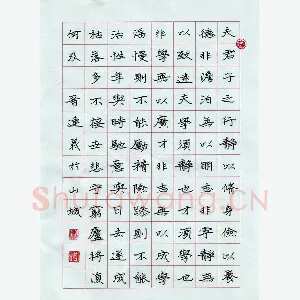 夫君子之行靜以修身儉以養
德非澹泊無以明志非寧靜無
以致遠夫學須靜也才須學也
非學無以廣才非志無以成學
慢則不能勵精險躁則不能
冶性年與時馳意與日去遂成
枯落多不接世悲守窮廬將復
何及
山城
Shufawang.CN